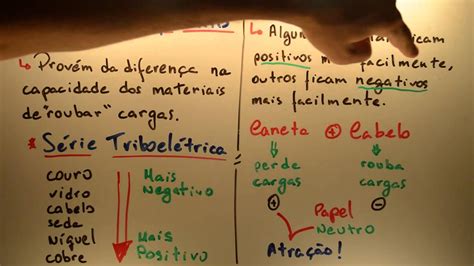 ↳ Provém da diferença na
capacidade dos materiais
de "roubar" cargas.
* Série Triboelétrica
couro
vidro
cabelo
seda
níquel
cobre
Mais
Negativo
Mais
Positivo
↳ Algun icam
positivos facilmente,
outros ficam negativos
mais facilmente.
Caneta ⊕ Cabelo
perde
cargas
⊕
rouba
cargas
⊖
Papel
Neutro
Atração!